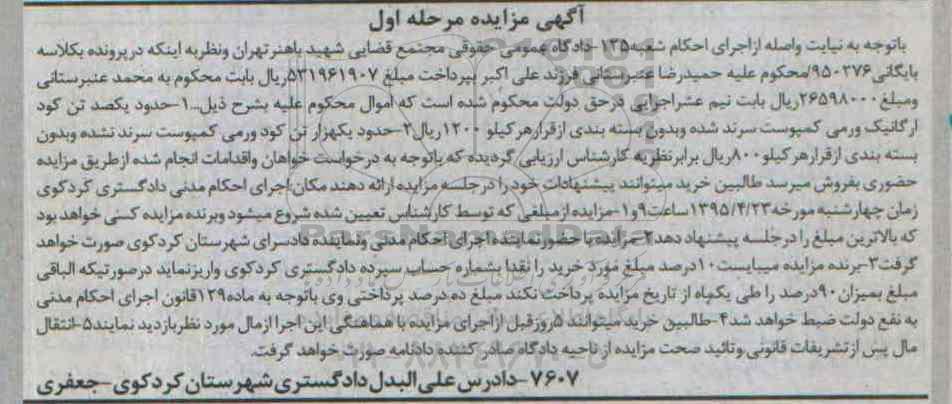 آگهی مزایده مرحله اول
باتوجه به نیابت واصله ازاجرای احکام شعبه۱۳۵-دادگاه عمومی حقوقی مجتمع قضایی شهید باهنرتهران ونظربه اینکه درپرونده بکلاسه
بایگانی۹۵۰۳۷۶/محکوم علیه حمیدرضا عنبرستانی فرزند علی اکبر بپرداخت مبلغ ۵۳۱۹۶۱۹۰۷ریال بابت محکوم به محمد عنبرستانی
ومبلغ ۲۶۵۹۸۰۰۰ریال بابت نیم عشراجرایی درحق دولت محکوم شده است که اموال محکوم علیه بشرح ذیل..۱-حدود یکصد تن کود
ارگانیک ورمی کمپوست سرند شده وبدون بسته بندی ازقرارهرکیلو ۱۲۰۰ریال۲-حدود یکهزار تن کود ورمی کمپوست سرند نشده وبدون
بسته بندی ازقرارهرکیلو۸۰۰ریال برابرنظریه کارشناس ارزیابی گردیده که باتوجه به درخواست خواهان واقدامات انجام شده ازطریق مزایده
حضوری بفروش میرسد طالبین خرید میتوانند پیشنهادات خود را درجلسه مزایده ارائه دهند مکان:اجرای احکام مدنی دادگستری کردکوی
زمان چهارشنبه مورخه۱۳۹۵/۴/۲۳ساعت۹و۱-مزایده ازمبلغی که توسط کارشناس تعیین شده شروع میشود وبرنده مزایده کسی خواهد بود
که بالاترین مبلغ را درجلسه پیشنهاد دهد۲-مزایده باحضورنماینده اجرای احکام مدنی ونماینده دادسرای شهرستان کردکوی صورت خواهد
گرفت۳-برنده مزایده میبایست۱۰درصد مبلغ مورد خرید را نقدا بشماره حساب سپرده دادگستری کردکوی واریزنماید درصورتیکه الباقی
مبلغ بمیزان۹۰درصد را طی یکماه از تاریخ مزایده پرداخت نکند مبلغ ده درصد پرداختی وی باتوجه به ماده۱۲۹قانون اجرای احکام مدنی
به نفع دولت ضبط خواهد شد۴-طالبین خرید میتوانند ۵روزقبل ازاجرای مزایده با هماهنگی این اجرا ازمال مورد نظربازدید نمایند۵-انتقال
مال پس ازتشریفات قانونی وتائید صحت مزایده از ناحیه دادگاه صادر کننده دادنامه صورت خواهد گرفت.
۷۶۰۷-دادرس علی البدل دادگستری شهرستان کردکوی-جعفری
ParsNamadData